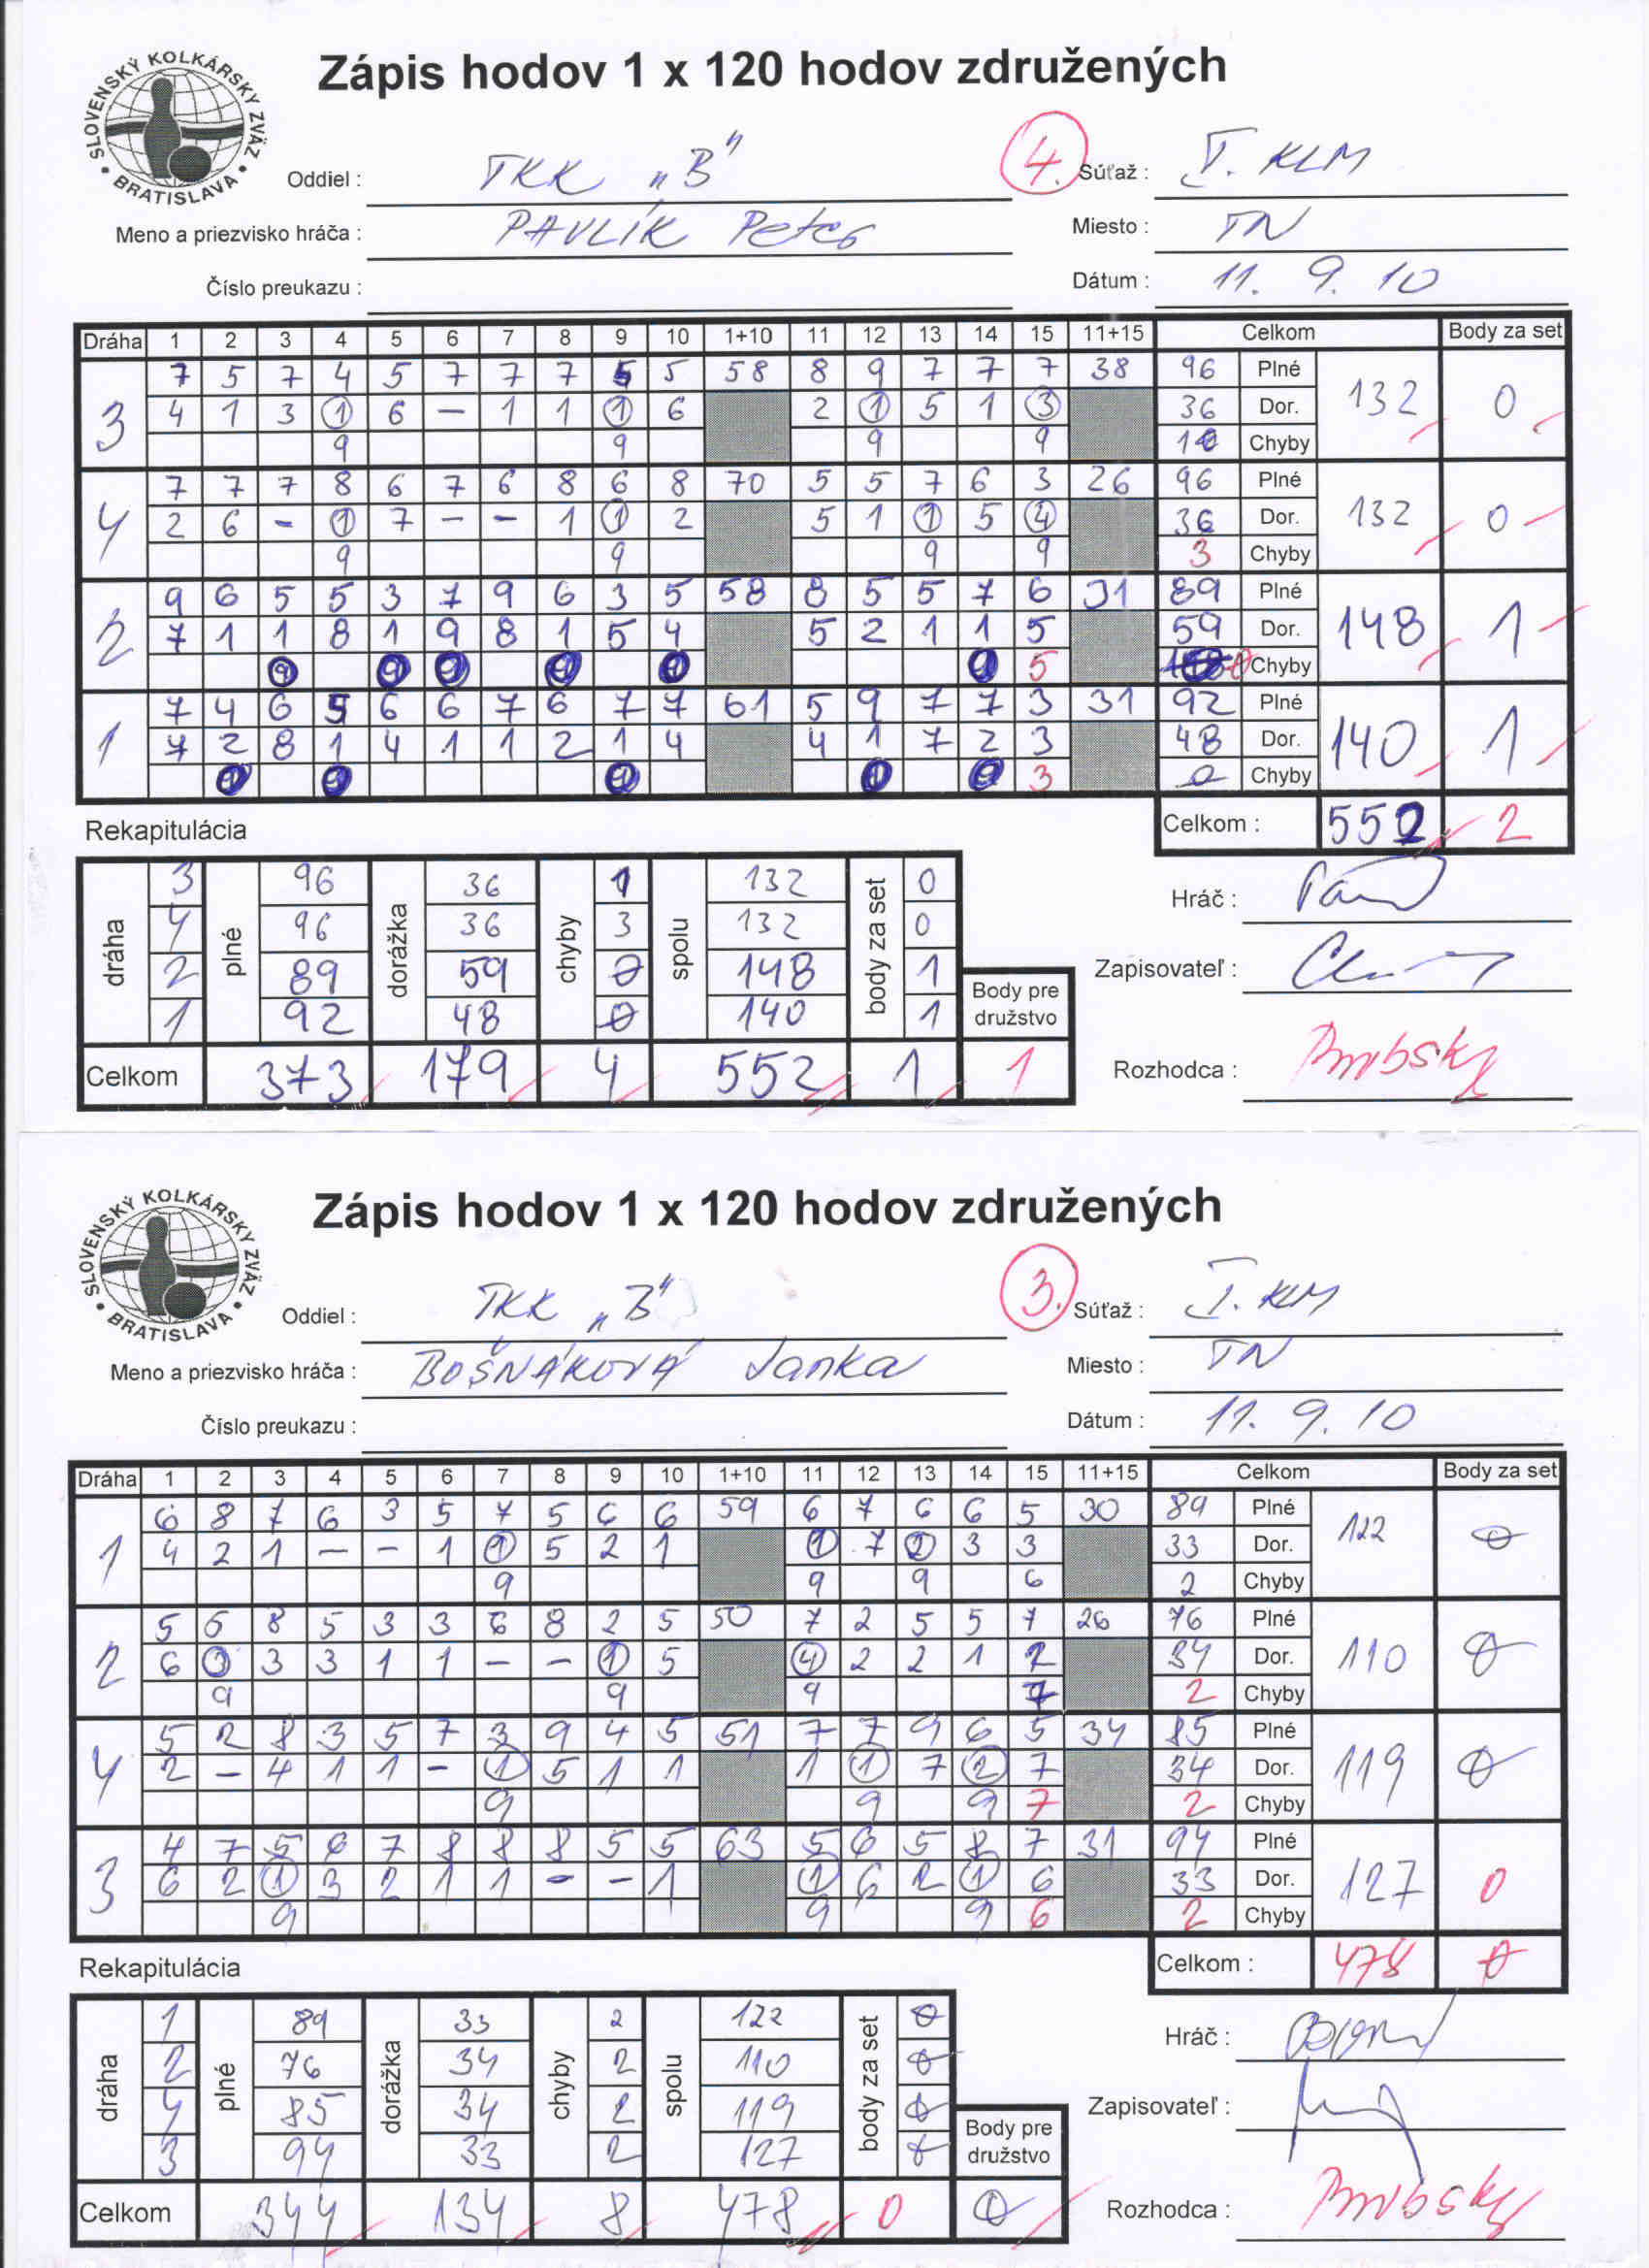 SLOVENSKÝ KOLKÁRSKY ZVÄZ
• BRATISLAVA •
Zápis hodov 1 x 120 hodov združených
Oddiel : TKK „B" 4. Súťaž : I. KLM
Meno a priezvisko hráča : PAVLÍK Peter Miesto : TN
Číslo preukazu : Dátum : 11. 9. 10
Dráha 1 2 3 4 5 6 7 8 9 10 1+10 11 12 13 14 15 11+15 Celkom Body za set
7 5 7 4 5 7 7 7 5 5 58 8 9 7 7 7 38 96 Plné
3 4 1 3 1 6 – 1 1 1 6 2 1 5 1 3 36 Dor. 132 0
9 9 9 9 1 Chyby
7 7 7 8 6 7 6 8 6 8 70 5 5 7 6 3 26 96 Plné
4 2 6 – 1 7 – – 1 1 2 5 1 1 5 4 36 Dor. 132 0
9 9 9 9 3 Chyby
9 6 5 5 3 7 9 6 3 5 58 8 5 5 7 6 31 89 Plné
2 7 1 1 8 1 9 8 1 5 4 5 2 1 1 5 59 Dor. 148 1
5 0 Chyby
7 4 6 5 6 6 7 6 7 7 61 5 9 7 7 3 31 92 Plné
1 7 2 8 1 4 1 1 2 1 4 4 1 7 2 3 48 Dor. 140 1
3 0 Chyby
Rekapitulácia Celkom : 552 2
dráha plné dorážka chyby spolu body za set
3 96 36 1 132 0
4 96 36 3 132 0
2 89 59 0 148 1
1 92 48 0 140 1
Body pre družstvo
Celkom 373 179 4 552 1 1
Hráč :
Zapisovateľ :
Rozhodca :
SLOVENSKÝ KOLKÁRSKY ZVÄZ
• BRATISLAVA •
Zápis hodov 1 x 120 hodov združených
Oddiel : TKK „B" 3. Súťaž : I. KLM
Meno a priezvisko hráča : BOŠNÁKOVÁ Janka Miesto : TN
Číslo preukazu : Dátum : 11. 9. 10
Dráha 1 2 3 4 5 6 7 8 9 10 1+10 11 12 13 14 15 11+15 Celkom Body za set
6 8 7 6 3 5 7 5 6 6 59 6 7 6 6 5 30 89 Plné
1 4 2 1 – – 1 1 5 2 1 1 7 2 3 3 33 Dor. 122 0
9 9 9 6 2 Chyby
5 6 8 5 3 3 6 8 2 5 50 7 2 5 5 7 26 76 Plné
2 6 3 3 3 1 1 – – 1 5 4 2 2 1 2 34 Dor. 110 0
9 9 9 7 2 Chyby
5 2 8 3 5 7 3 9 4 5 51 7 7 9 6 5 34 85 Plné
4 2 – 4 1 1 – 1 5 1 1 1 1 7 2 7 34 Dor. 119 0
9 9 9 7 2 Chyby
4 7 5 6 7 8 8 8 5 5 63 5 6 5 8 7 31 94 Plné
3 6 2 1 3 2 1 1 – – 1 1 6 2 1 6 33 Dor. 127 0
9 9 9 6 2 Chyby
Rekapitulácia Celkom : 478 0
dráha plné dorážka chyby spolu body za set
1 89 33 2 122 0
2 76 34 2 110 0
4 85 34 2 119 0
3 94 33 2 127 0
Body pre družstvo
Celkom 344 134 8 478 0 0
Hráč :
Zapisovateľ :
Rozhodca :